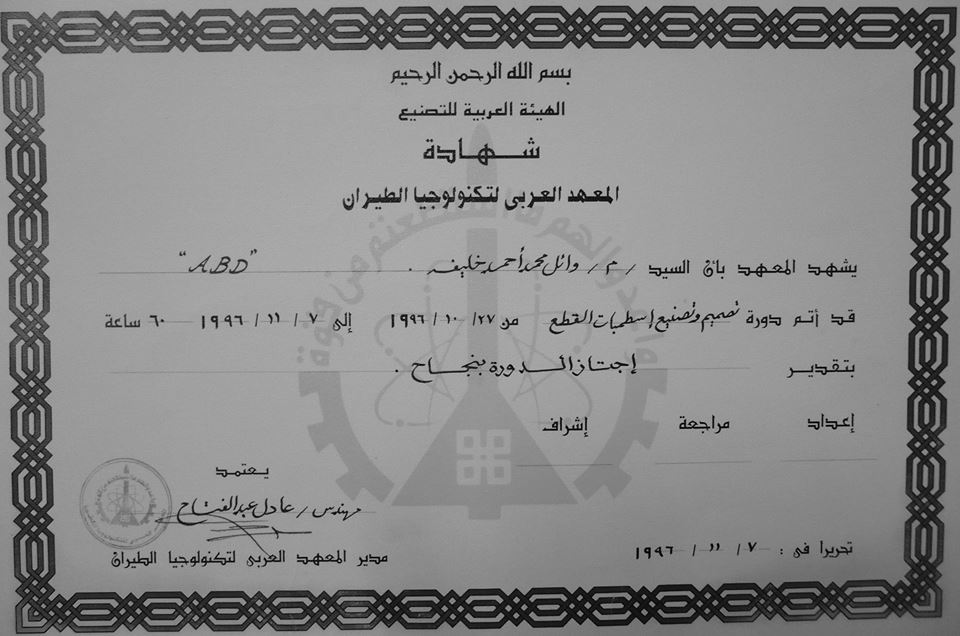 بسم الله الرحمن الرحيم
الهيئة العربية للتصنيع
شهادة
المعهد العربى لتكنولوجيا الطيران
يشهد المعهد بأن السيد / م / وائل محمد أحمد خليفه . "ABD"
قد أتم دورة تصميم وتصنيع إسطمبات القطع من ٢٧ / ١٠ / ١٩٩٦ إلى ٧ / ١١ / ١٩٩٦ ٦٠ ساعة
بتقدير إجتاز الدورة بنجاح .
إعداد مراجعة إشراف
يعتمد
مهندس / عادل عبد الفتاح
مدير المعهد العربى لتكنولوجيا الطيران
تحريرا فى : ٧ / ١١ / ١٩٩٦